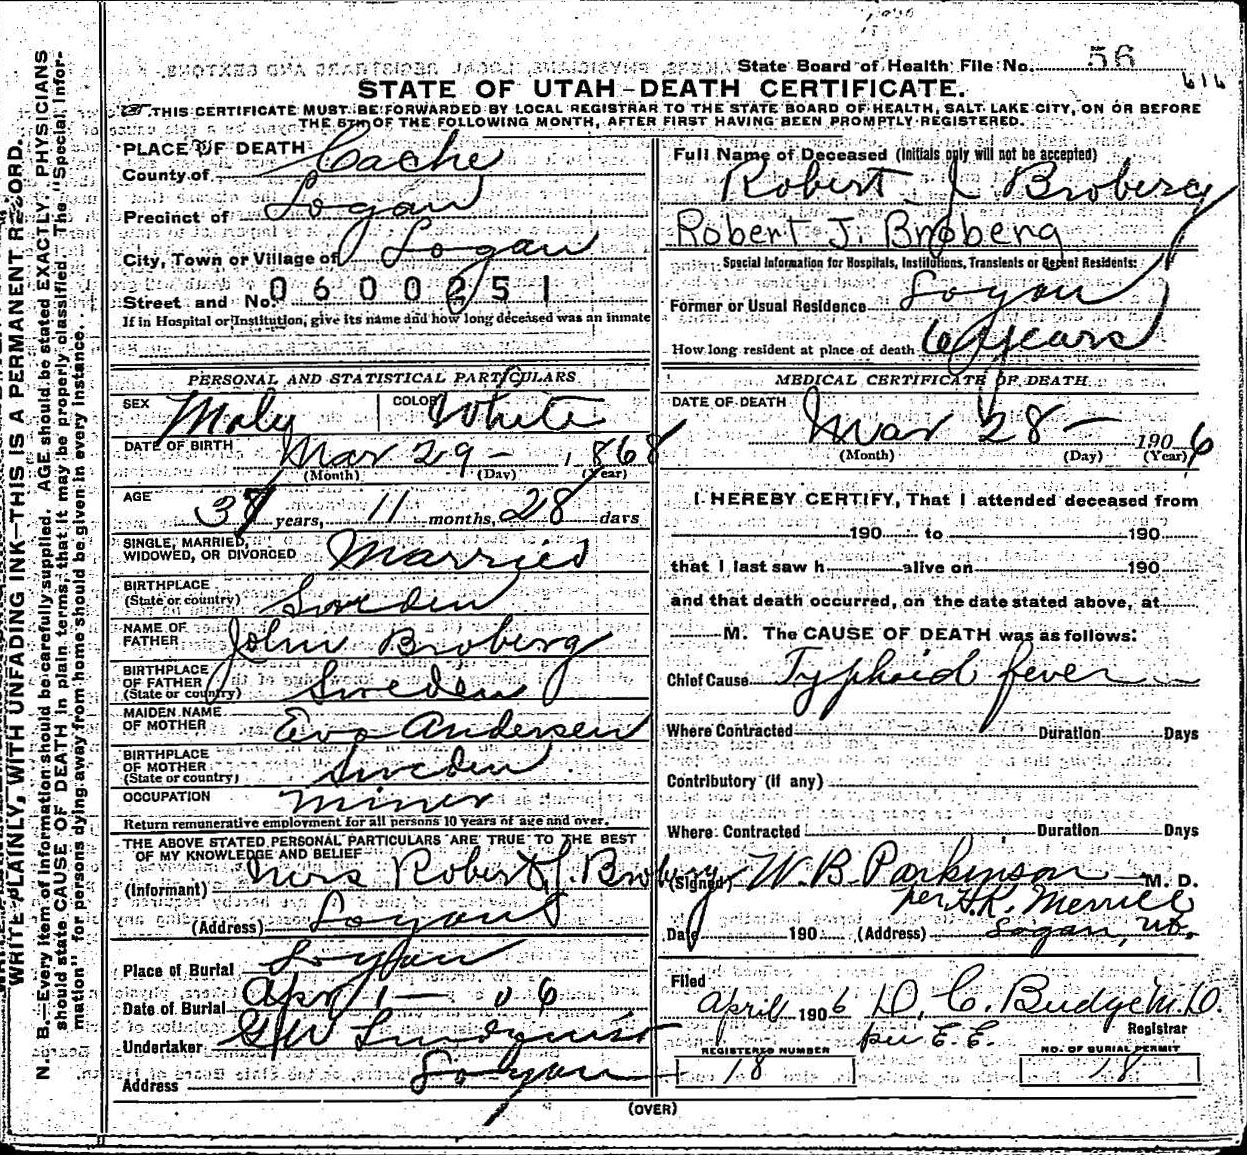 State Board of Health File No. 56
616
STATE OF UTAH-DEATH CERTIFICATE.
THIS CERTIFICATE MUST BE FORWARDED BY LOCAL REGISTRAR TO THE STATE BOARD OF HEALTH, SALT LAKE CITY, ON OR BEFORE
THE 5TH OF THE FOLLOWING MONTH, AFTER FIRST HAVING BEEN PROMPTLY REGISTERED.
WRITE PLAINLY, WITH UNFADING INK—THIS IS A PERMANENT RECORD.
N. B.—Every item of information should be carefully supplied. AGE should be stated EXACTLY. PHYSICIANS
should state CAUSE OF DEATH in plain terms, that it may be properly classified. The "Special Infor-
mation" for persons dying away from home should be given in every instance.
PLACE OF DEATH
County of Cache
Precinct of Logan
City, Town or Village of Logan
Street and No. 0600251
If in Hospital or Institution, give its name and how long deceased was an inmate
PERSONAL AND STATISTICAL PARTICULARS
SEX Male COLOR White
DATE OF BIRTH Mar 29 - 1868
(Month) (Day) (Year)
AGE 38 years, 11 months, 28 days
SINGLE, MARRIED,
WIDOWED, OR DIVORCED Married
BIRTHPLACE
(State or country) Sweden
NAME OF
FATHER John Broberg
BIRTHPLACE
OF FATHER
(State or country) Sweden
MAIDEN NAME
OF MOTHER Eva Andersen
BIRTHPLACE
OF MOTHER
(State or country) Sweden
OCCUPATION Miner
Return remunerative employment for all persons 10 years of age and over.
THE ABOVE STATED PERSONAL PARTICULARS ARE TRUE TO THE BEST
OF MY KNOWLEDGE AND BELIEF
(Informant) Mrs Robert J. Broberg
(Address) Logan
Place of Burial Logan
Date of Burial Apr 1 - 06
Undertaker G W Lindquist
Address Logan
Full Name of Deceased (Initials only will not be accepted)
Robert J Broberg
Robert J. Broberg
Special Information for Hospitals, Institutions, Transients or Recent Residents:
Former or Usual Residence Logan
How long resident at place of death 6 years
MEDICAL CERTIFICATE OF DEATH
DATE OF DEATH Mar 28 - 1906
(Month) (Day) (Year)
I HEREBY CERTIFY, That I attended deceased from
190 to 190
that I last saw h alive on 190
and that death occurred, on the date stated above, at
M. The CAUSE OF DEATH was as follows:
Chief Cause Typhoid fever
Where Contracted Duration Days
Contributory (if any)
Where Contracted Duration Days
(Signed) W. B. Parkinson M. D.
per H.K. Merrill
Date 190 (Address) Logan, Ut.
Filed
April 1906 D. C. Budge M.D.
Registrar
per E. E.
REGISTERED NUMBER
18
NO. OF BURIAL PERMIT
18
(OVER)